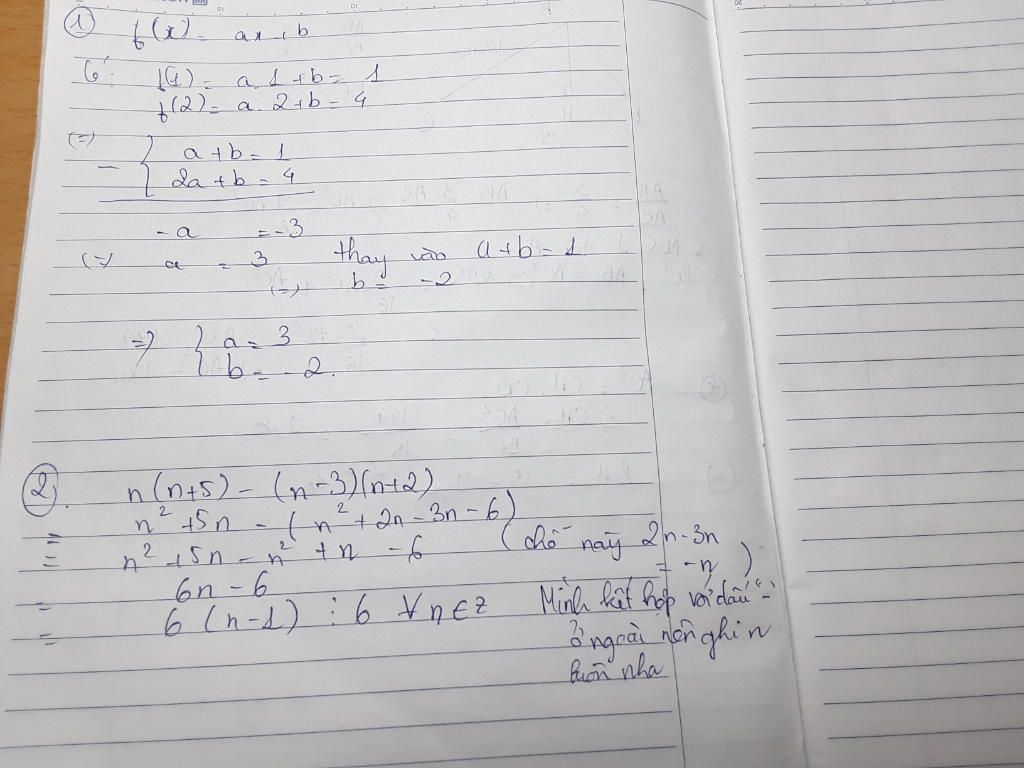 ① f(x) = ax + b
Có: f(1) = a.1 + b = 1
f(2) = a.2 + b = 4
(=) { a + b = 1
- { 2a + b = 4
-a = -3
(=) a = 3 thay vào a + b = 1
(=) b = -2
=) { a = 3
{ b = -2.
② n(n+5) - (n-3)(n+2)
= n² + 5n - (n² + 2n - 3n - 6)
= n² + 5n - n² + n - 6 (chỗ này 2n - 3n
= -n)
= 6n - 6
= 6(n-1) ⋮ 6 ∀n∈Z Mình kết hợp với dấu "-"
ở ngoài nên ghi n
luôn nha